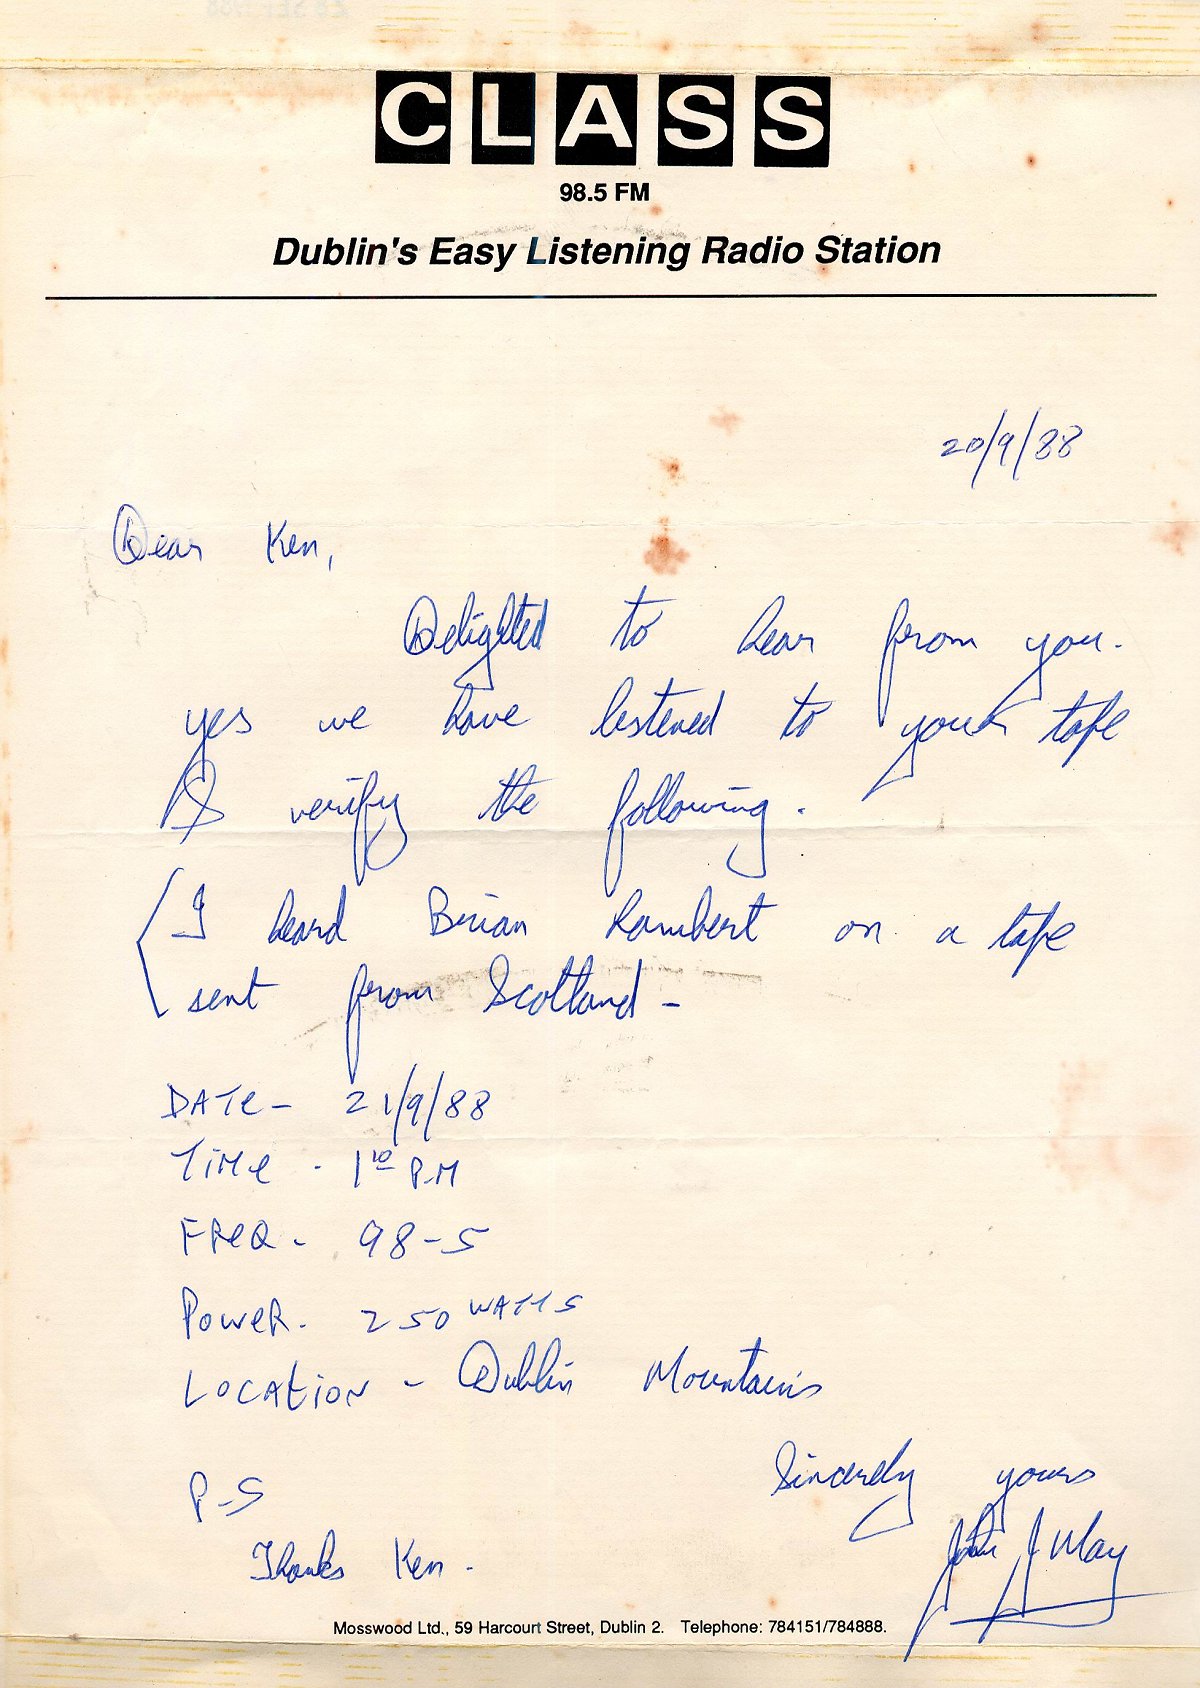 CLASS
98.5 FM
Dublin's Easy Listening Radio Station
20/9/88
Dear Ken,
Delighted to hear from you.
yes we have listened to your tape
& verify the following.
I heard Brian Lambert on a tape
sent from Scotland -
DATE - 21/9/88
TIME - 1 10 P.M
FREQ - 98-5
POWER - 250 WATTS
LOCATION - Dublin Mountains
Sincerely yours
John J May
P-S
Thanks Ken.
Mosswood Ltd., 59 Harcourt Street, Dublin 2. Telephone: 784151/784888.